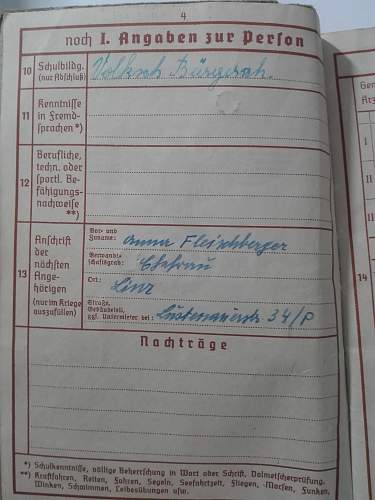 4
noch I. Angaben zur Person
10 Schulbildg. (nur Abschluß) Volksch. Bürgersch.
11 Kenntnisse in Fremdsprachen *)
12 Berufliche, techn. oder sportl. Befähigungsnachweise **)
13 Anschrift der nächsten Angehörigen (nur im Kriege auszufüllen)
Vor- und Zuname: Anna Fleischberger
Verwandtschaftsgrad: Ehefrau
Ort: Linz
Straße, Gebäudeteil, ggf. Untermieter bei: Lustenauerstr. 34/P
Nachträge
*) Schulkenntnisse, völlige Beherrschung in Wort oder Schrift, Dolmetscherprüfung.
**) Kraftfahren, Reiten, Fahren, Segeln, Seefahrtzeit, Fliegen, Morsen, Funken,
Winken, Schwimmen, Leibesübungen usw.
Arz
I
II
14